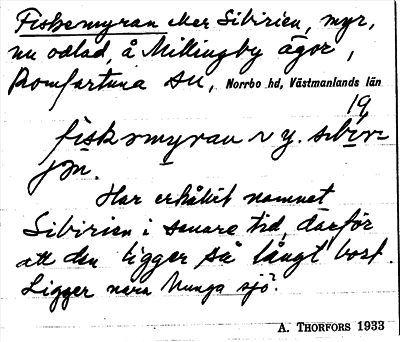 Fiskemyran eller Sibirien, myr,
nu odlad, å Millingby ägor,
Romfartuna sn, Norrbo hd, Västmanlands län
19
fiskmyran
Har erhållit namnet
Sibirien i senare tid, därför
att den ligger så långt bort.
Ligger nära Munga sjö.
A. THORFORS 1933